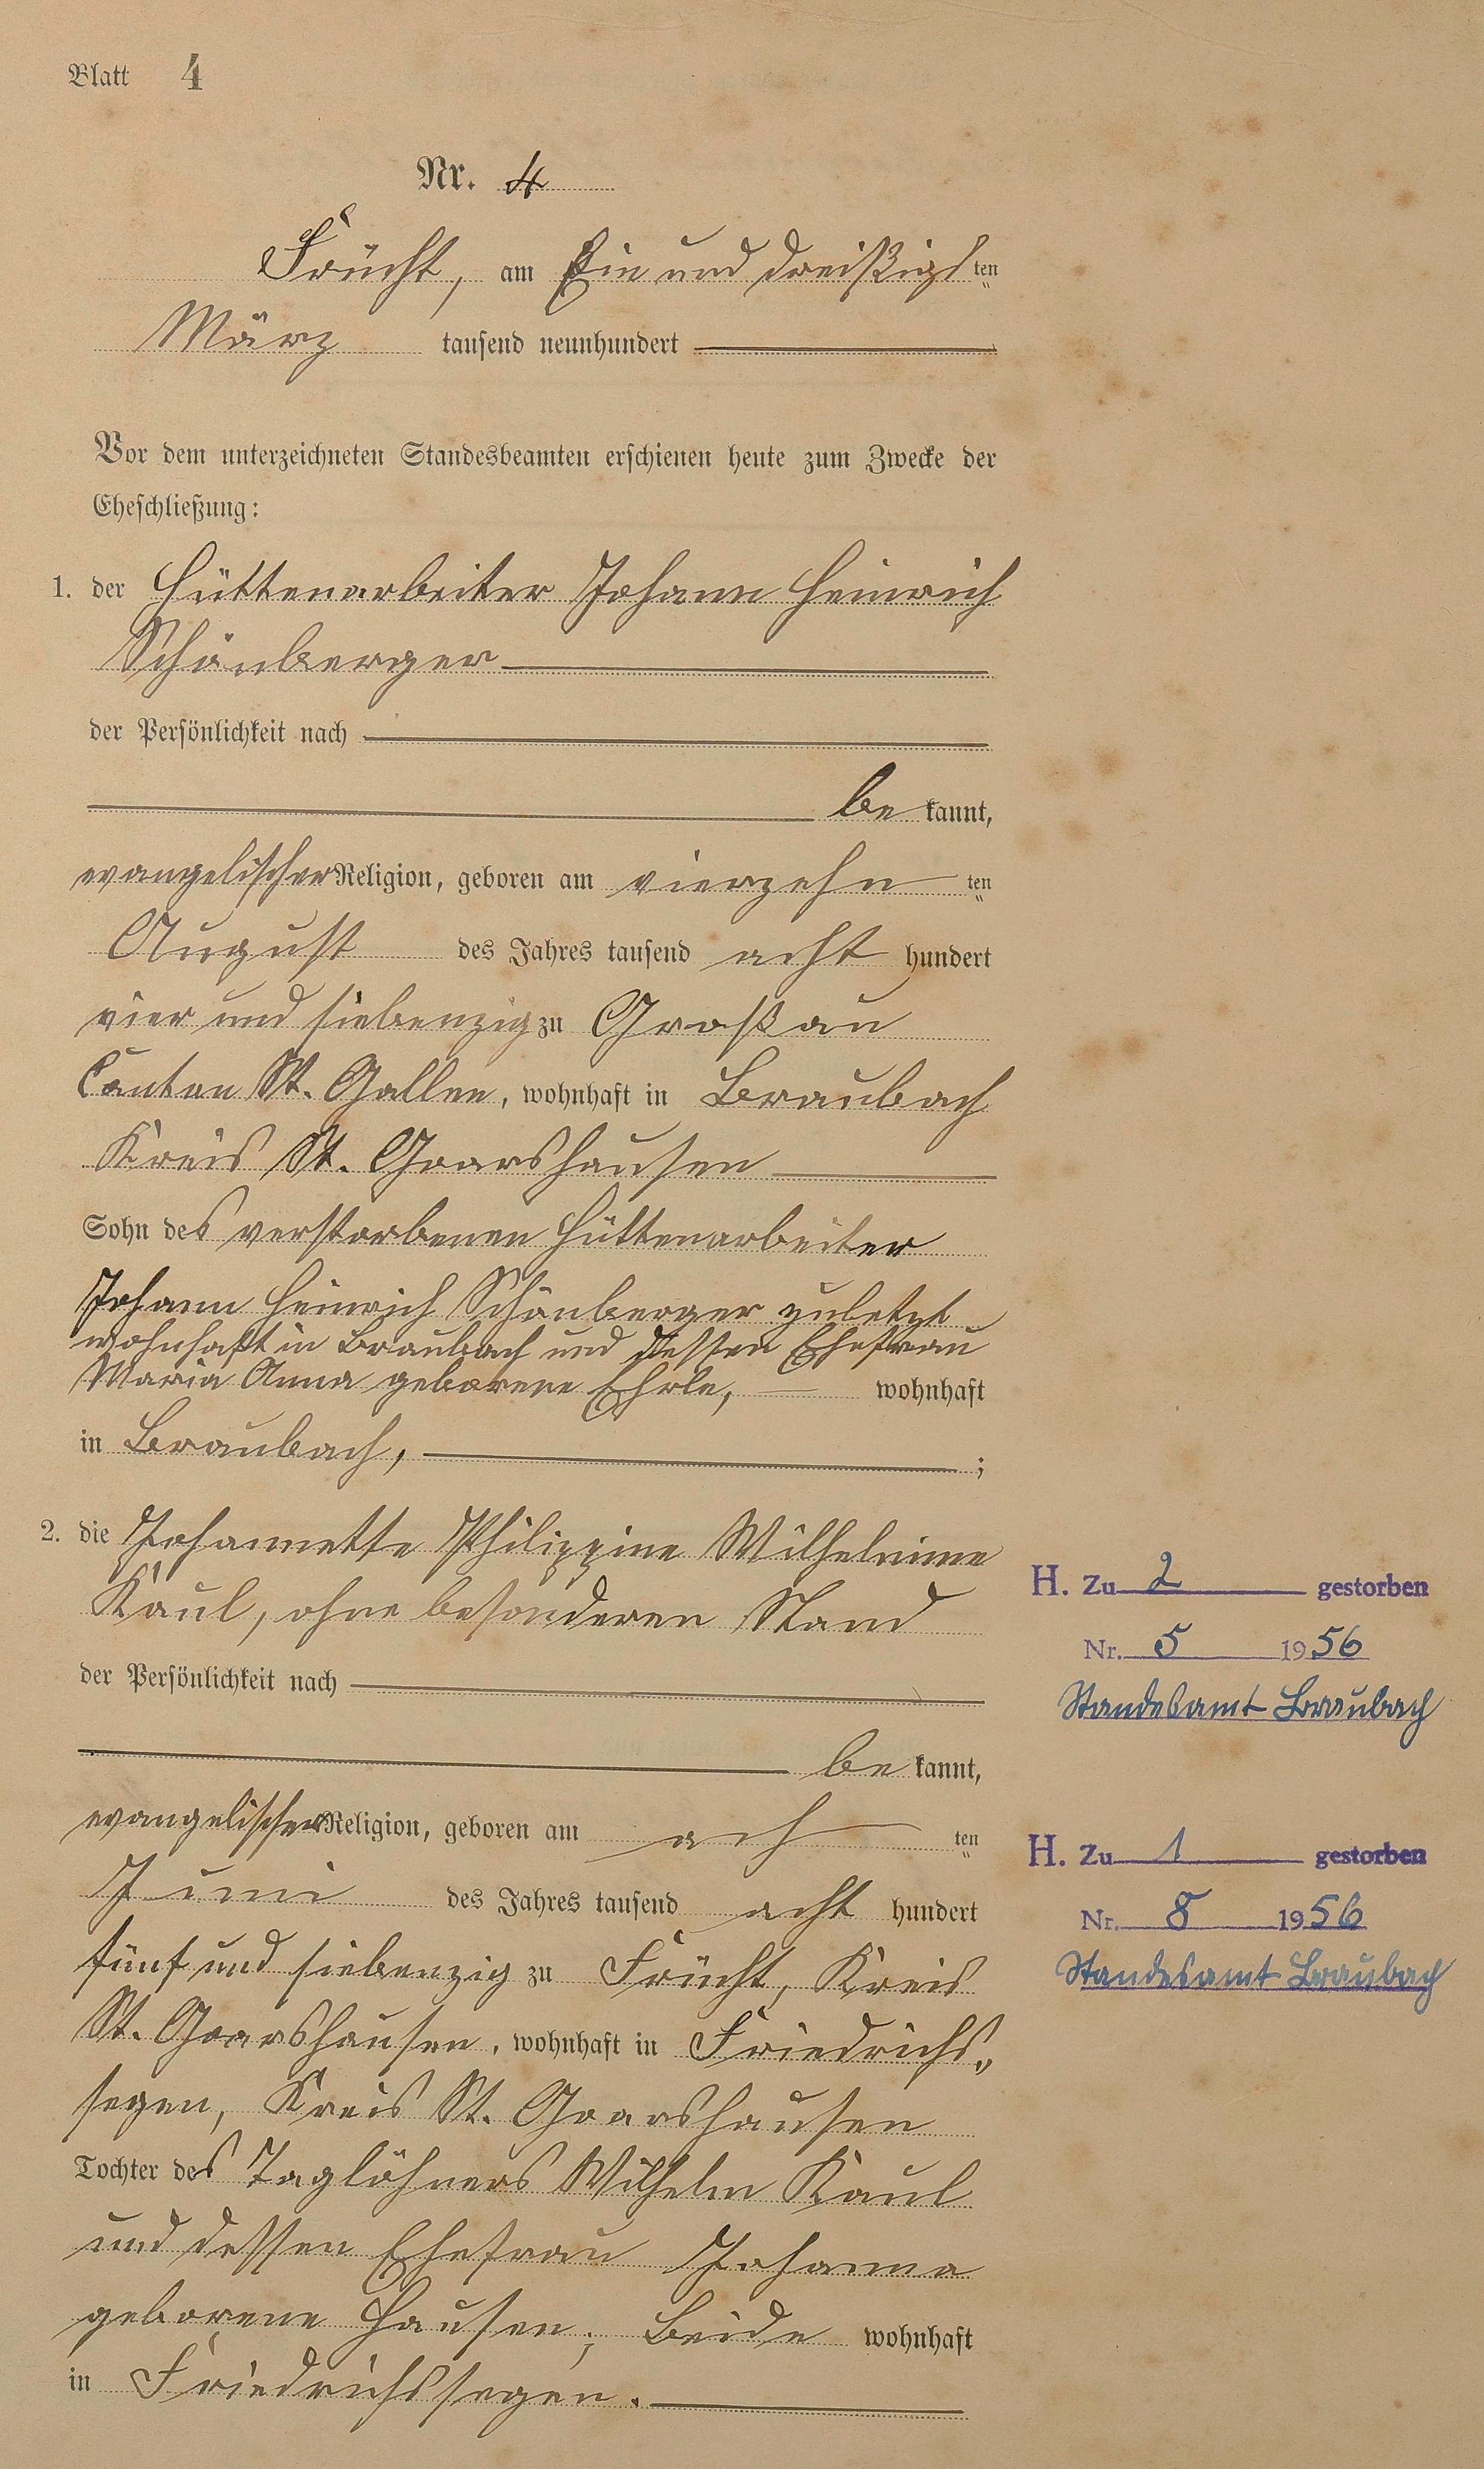 Blatt 4
Nr. 4
Frücht, am Ein und dreißigsten
März tausend neunhundert
Vor dem unterzeichneten Standesbeamten erschienen heute zum Zwecke der
Eheschließung:
1. der Hüttenarbeiter Johann Heinrich
Schönberger
der Persönlichkeit nach
bekannt,
evangelischer Religion, geboren am vierzehnten
August des Jahres tausend acht hundert
vier und siebenzig zu Großau
Canton St. Gallen, wohnhaft in Braubach
Kreis St. Goarshausen
Sohn des verstorbenen Hüttenarbeiter
Johann Heinrich Schönberger zuletzt
wohnhaft in Braubach und dessen Ehefrau
Maria Anna geborene Ehrle, wohnhaft
in Braubach, ;
2. die Johannette Philippine Wilhelmine
Kaul, ohne besonderen Stand
der Persönlichkeit nach
bekannt,
evangelischer Religion, geboren am achten
Juni des Jahres tausend acht hundert
fünf und siebenzig zu Frücht, Kreis
St. Goarshausen, wohnhaft in Friedrichs„
segen, Kreis St. Goarshausen
Tochter des Taglöhners Wilhelm Kaul
und dessen Ehefrau Johanna
geborene Hausen; beide wohnhaft
in Friedrichssegen.
H. Zu 2 gestorben
Nr. 5 1956
Standesamt Braubach
H. Zu 1 gestorben
Nr. 8 1956
Standesamt Braubach